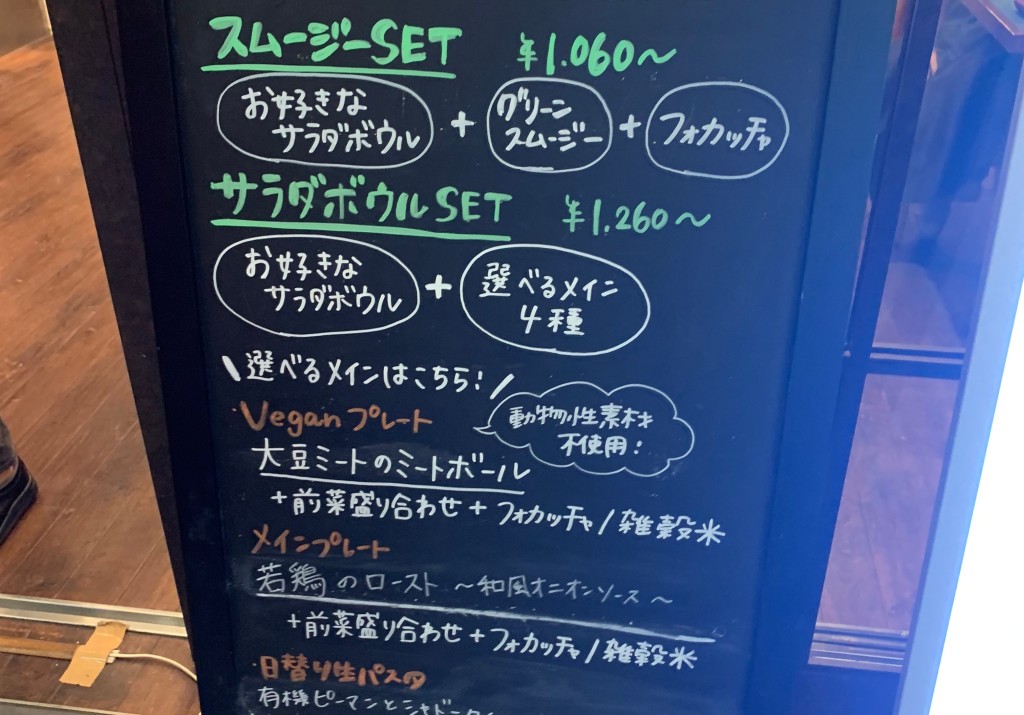 スムージーSET ¥1.060〜
お好きな サラダボウル + グリーン スムージー + フォカッチャ
サラダボウルSET ¥1.260〜
お好きな サラダボウル + 選べるメイン 4種
\選べるメインはこちら!/
・Veganプレート
動物性素材
不使用!
大豆ミートのミートボール
+前菜盛り合わせ+フォカッチャ/雑穀米
・メインプレート
若鶏のロースト 〜和風オニオンソース〜
+前菜盛り合わせ+フォカッチャ/雑穀米
・日替り生パスタ
有機ピーマンと